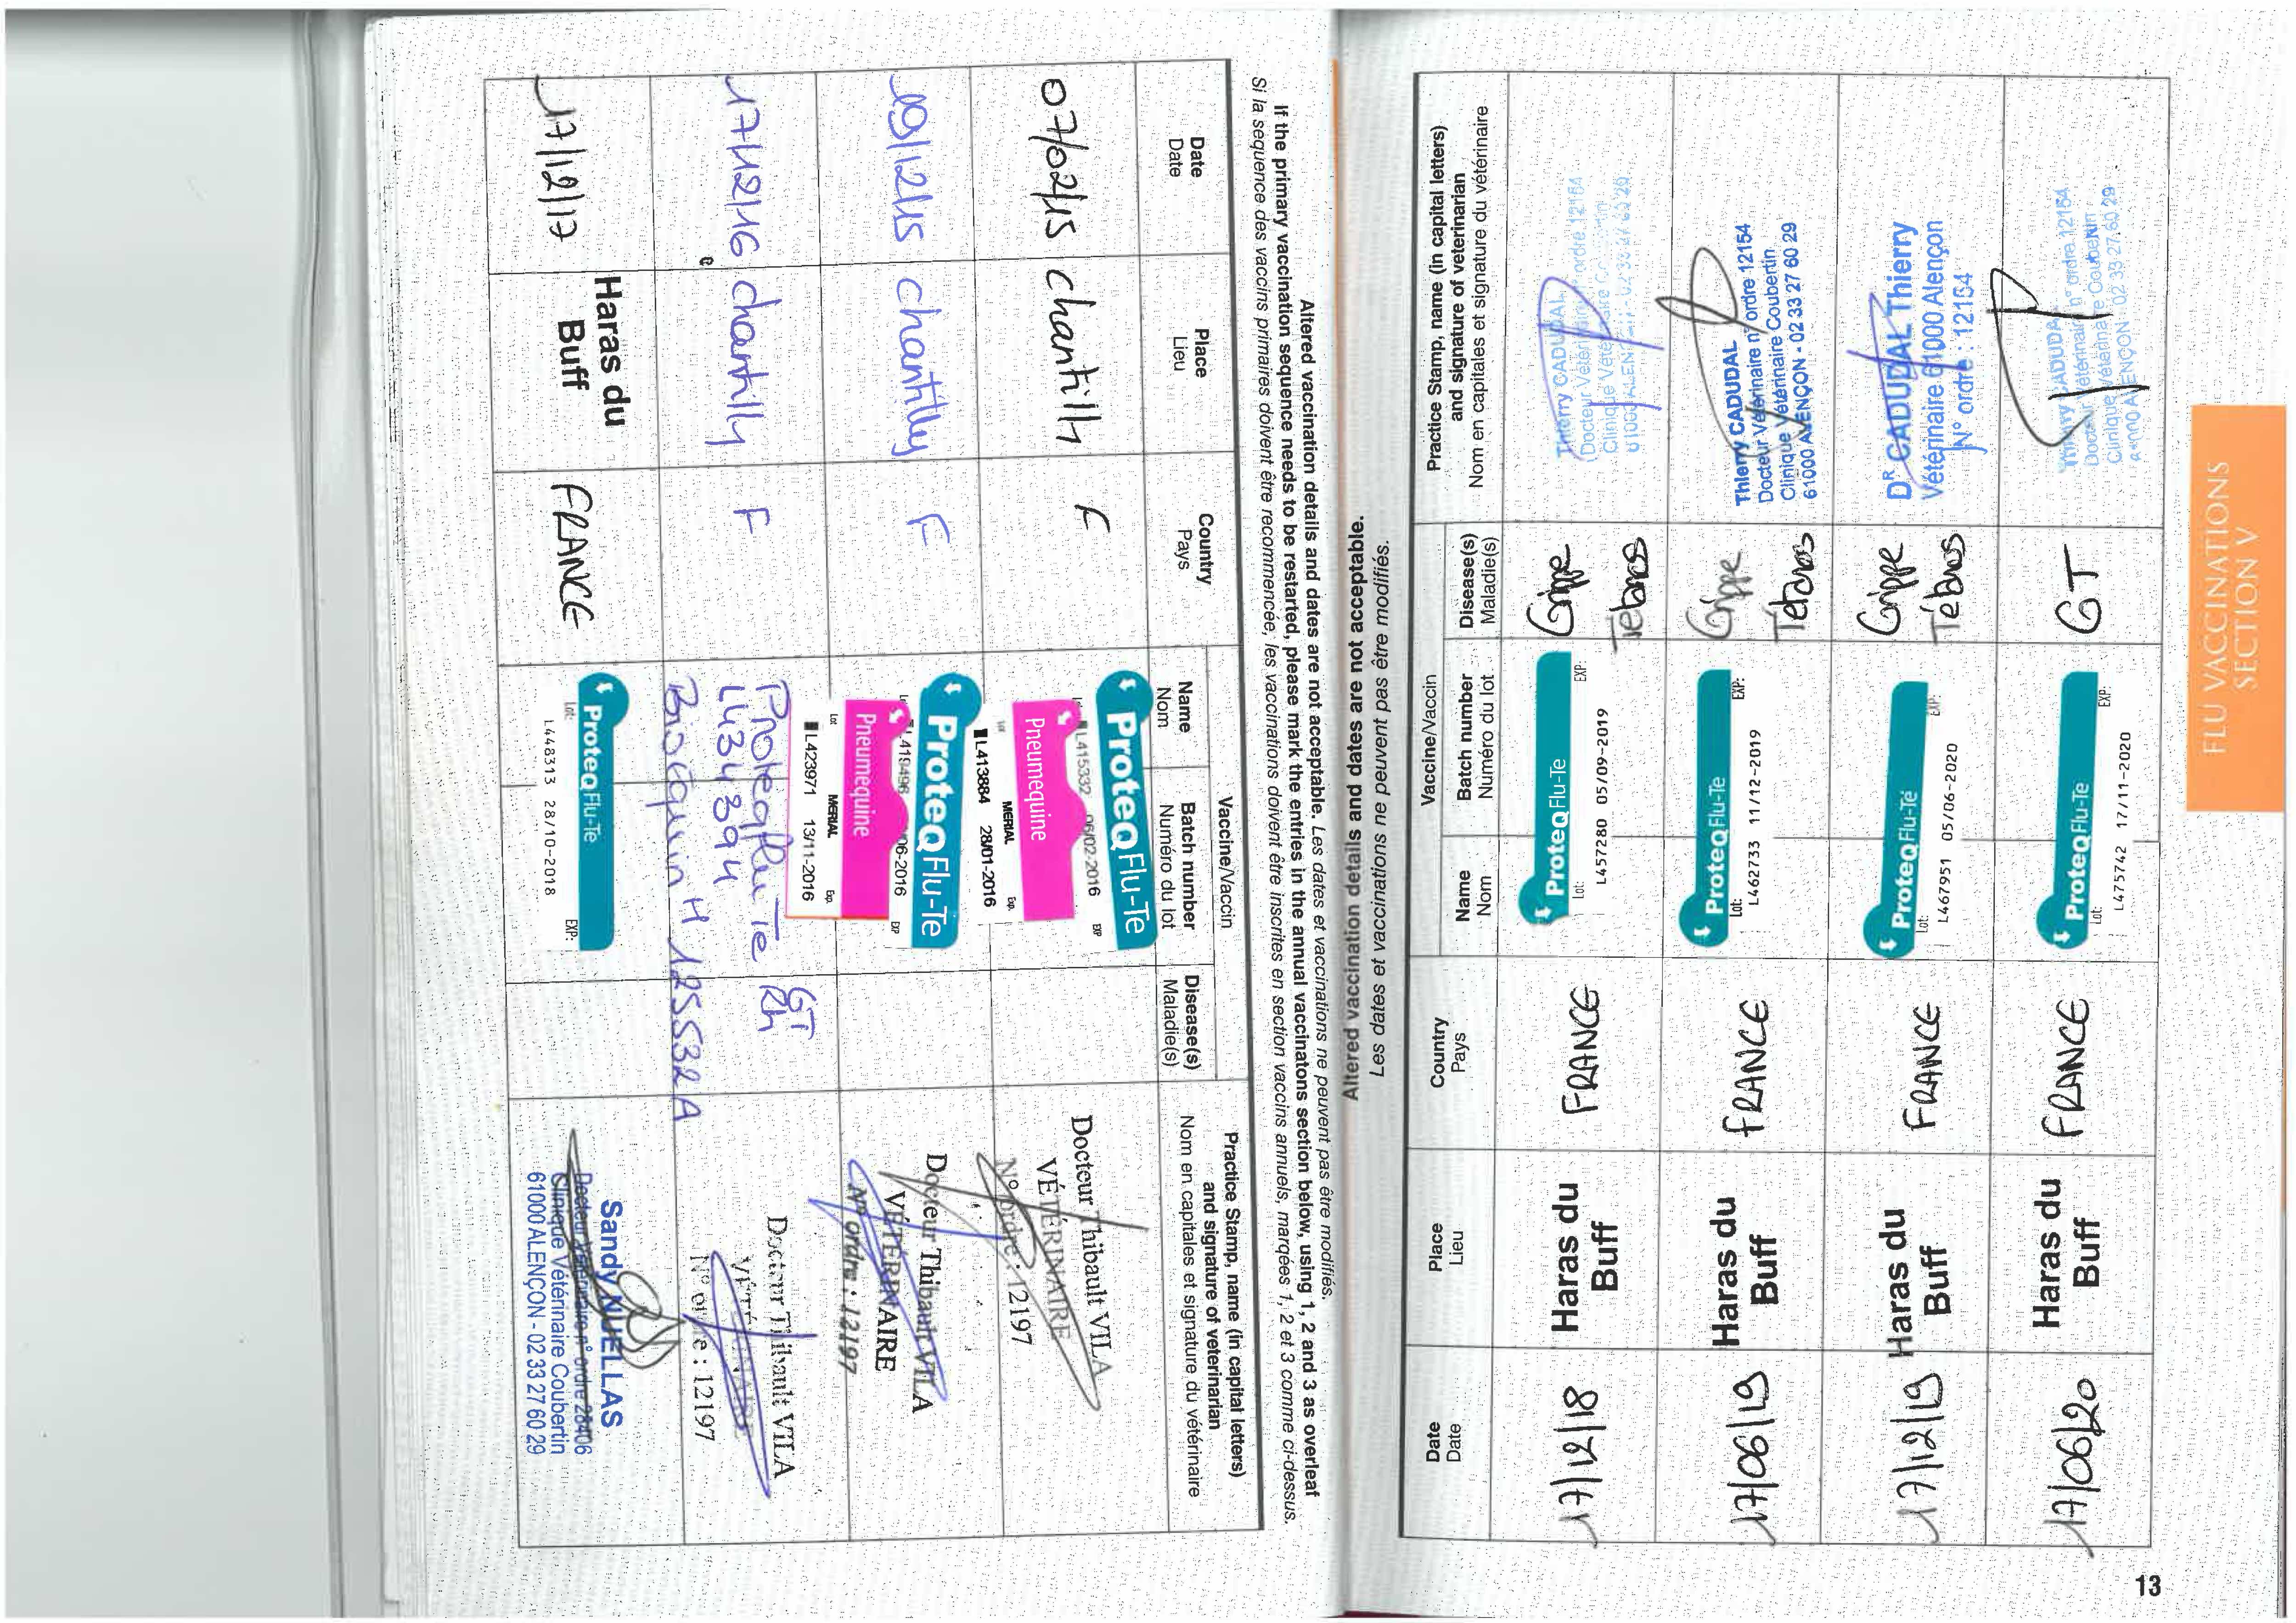 Altered vaccination details and dates are not acceptable. Les dates et vaccinations ne peuvent pas être modifiés.
If the primary vaccination sequence needs to be restarted, please mark the entries in the annual vaccinatons section below, using 1, 2 and 3 as overleaf
Si la sequence des vaccins primaires doivent être recommencée, les vaccinations doivent être inscrites en section vaccins annuels, marqées 1, 2 et 3 comme ci-dessus.
Date
Date
Place
Lieu
Country
Pays
Vaccine/Vaccin
Name
Nom
Batch number
Numéro du lot
Disease(s)
Maladie(s)
Practice Stamp, name (in capital letters)
and signature of veterinarian
Nom en capitales et signature du vétérinaire
07/02/15
chantilly
F
ProteqFlu-Te
L415332 06/02 2016
EXP
Pneumequine
MERIAL
Exp.
L413884 28/01-2016
Docteur Thibault VILA
VÉTÉRINAIRE
N° ordre : 12197
chantilly
F
ProteqFlu-Te
06-2016
EXP
Pneumequine
Lot
MERIAL
Exp.
L423971 13/11-2016
Docteur Thibault VILA
VÉTÉRINAIRE
N° ordre : 12197
17/12/16
chantilly
F
Proteqflu Te
L434394
Bioequin H 125532A
GT
Rh
Docteur Thibault VILA
VÉTÉRINAIRE
N° ordre : 12197
17/12/17
Haras du
Buff
FRANCE
ProteqFlu-Te
Lot:
EXP:
L448313 28/10-2018
Sandy NUELLAS
Docteur Vétérinaire n° ordre 28406
Clinique Vétérinaire Coubertin
61000 ALENÇON - 02 33 27 60 29
FLU VACCINATIONS
SECTION V
Altered vaccination details and dates are not acceptable.
Les dates et vaccinations ne peuvent pas être modifiés.
Date
Date
Place
Lieu
Country
Pays
Vaccine/Vaccin
Name
Nom
Batch number
Numéro du lot
Disease(s)
Maladie(s)
Practice Stamp, name (in capital letters)
and signature of veterinarian
Nom en capitales et signature du vétérinaire
17/12/18
Haras du
Buff
FRANCE
ProteqFlu-Te
Lot:
EXP:
L457280 05/09-2019
Grippe
Tetanos
Thierry CADUDAL
Docteur Vétérinaire n° ordre 12154
17/06/19
Haras du
Buff
FRANCE
ProteqFlu-Te
Lot:
EXP:
L462733 11/12-2019
Grippe
Tetanos
Thierry CADUDAL
Docteur Vétérinaire n° ordre 12154
Clinique Vétérinaire Coubertin
61000 ALENÇON - 02 33 27 60 29
17/12/19
Haras du
Buff
FRANCE
ProteqFlu-Te
Lot:
EXP:
L467951 05/06-2020
Grippe
Tétanos
DR CADUDAL Thierry
Vétérinaire 61000 Alençon
N° ordre : 12154
17/06/20
Haras du
Buff
FRANCE
ProteqFlu-Te
Lot:
EXP:
L475742 17/11-2020
GT
Thierry CADUDAL
Docteur Vétérinaire n° ordre 12154
Clinique Vétérinaire Coubertin
61000 ALENÇON - 02 33 27 60 29
13